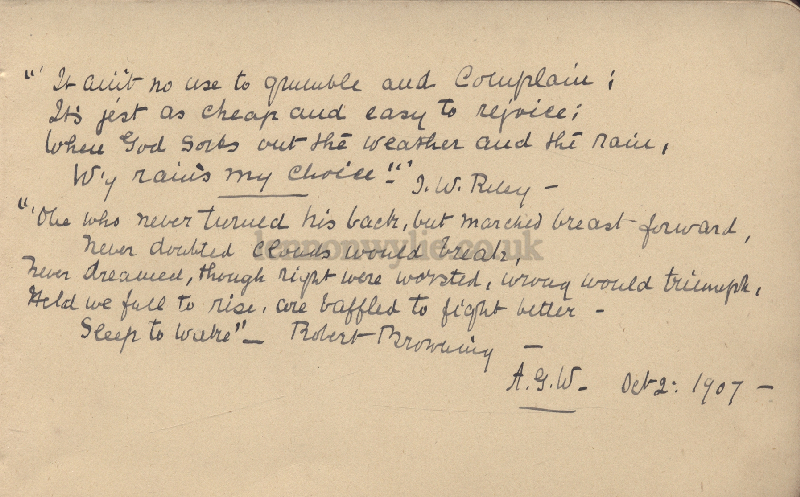 "' It ain't no use to grumble and Complain;
It's jest as cheap and easy to rejoice;
When God sorts out the weather and the rain,
W'y rain's my choice"! J. W. Riley -
"'One who never turned his back, but marched breast forward,
Never doubted clouds would break,
lennonwylie.co.uk
Never dreamed, though right were worsted, wrong would triumph,
Held we fall to rise, are baffled to fight better -
Sleep to wake" - Robert Browning -
A.G.W. Oct 2: 1907 -